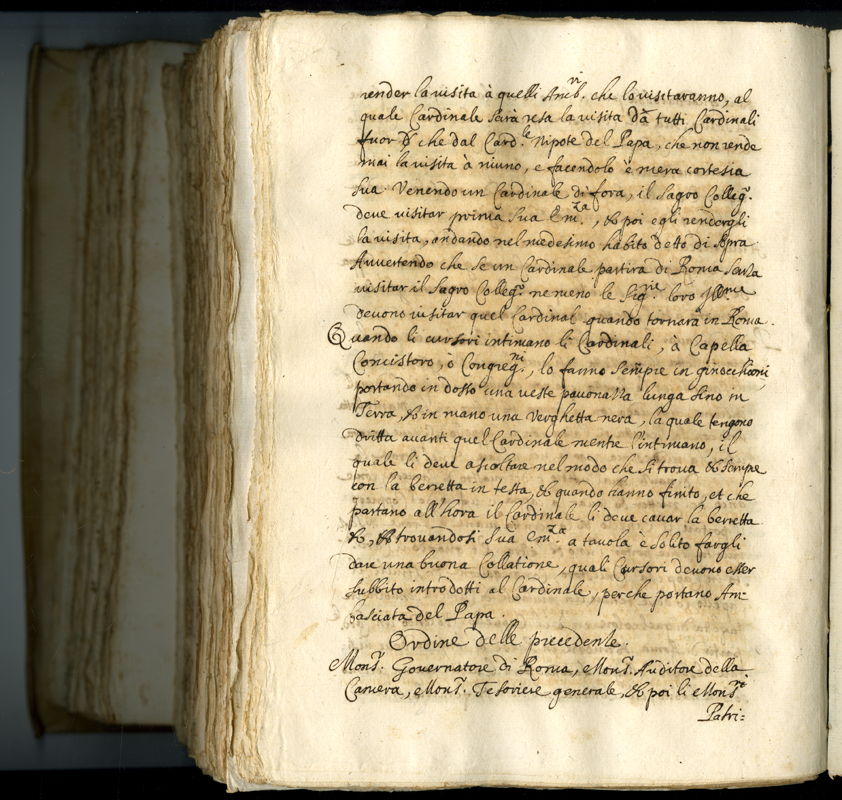 render la visita à quelli Amb.ri che lo visitaranno, al
quale Cardinale sarà resa la visita dà tutti Cardinali
fuor che dal Card.le Nipote del Papa, che non rende
mai la visita à niuno, e facendolo è mera cortesia
sua. Venendo un Cardinale di fora, il Sagro Colleg.o
deve visitar prima Sua Em.za, & poi egli rendergli
la visita, andando nel medesimo habito detto di sopra
Avvertendo che se un Cardinale partirà di Roma senza
visitar il Sagro Colleg.o ne meno le Sig.rie loro Ill.me
devono visitar quel Cardinal quando tornarà in Roma.
Quando li cursori intimano li Cardinali, à Capella
Concistoro, ò Congreg.ni, lo fanno sempre in ginocchioni,
portando in dosso una veste pavonazza lunga sino in
Terra, & in mano una verghetta nera, la quale tengono
dritta avanti quel Cardinale mentre l'intimano, il
quale li deve ascoltare nel modo che si trova & sempre
con la berretta in testa, & quando hanno finito, et che
partano all'hora il Cardinale li deve cavar la berretta
&, & trovandosi Sua Em.za a tavola è solito fargli
dare una buona Collatione, quali Cursori devono esser
subbito introdotti al Cardinale, perche portano Am=
basciata del Papa.
Ordine delle precedente.
Mons.r Governatore di Roma, Mons.r Auditore della
Camera, Mons.r Tesoriere generale, & poi li Mons.ri
Patri=